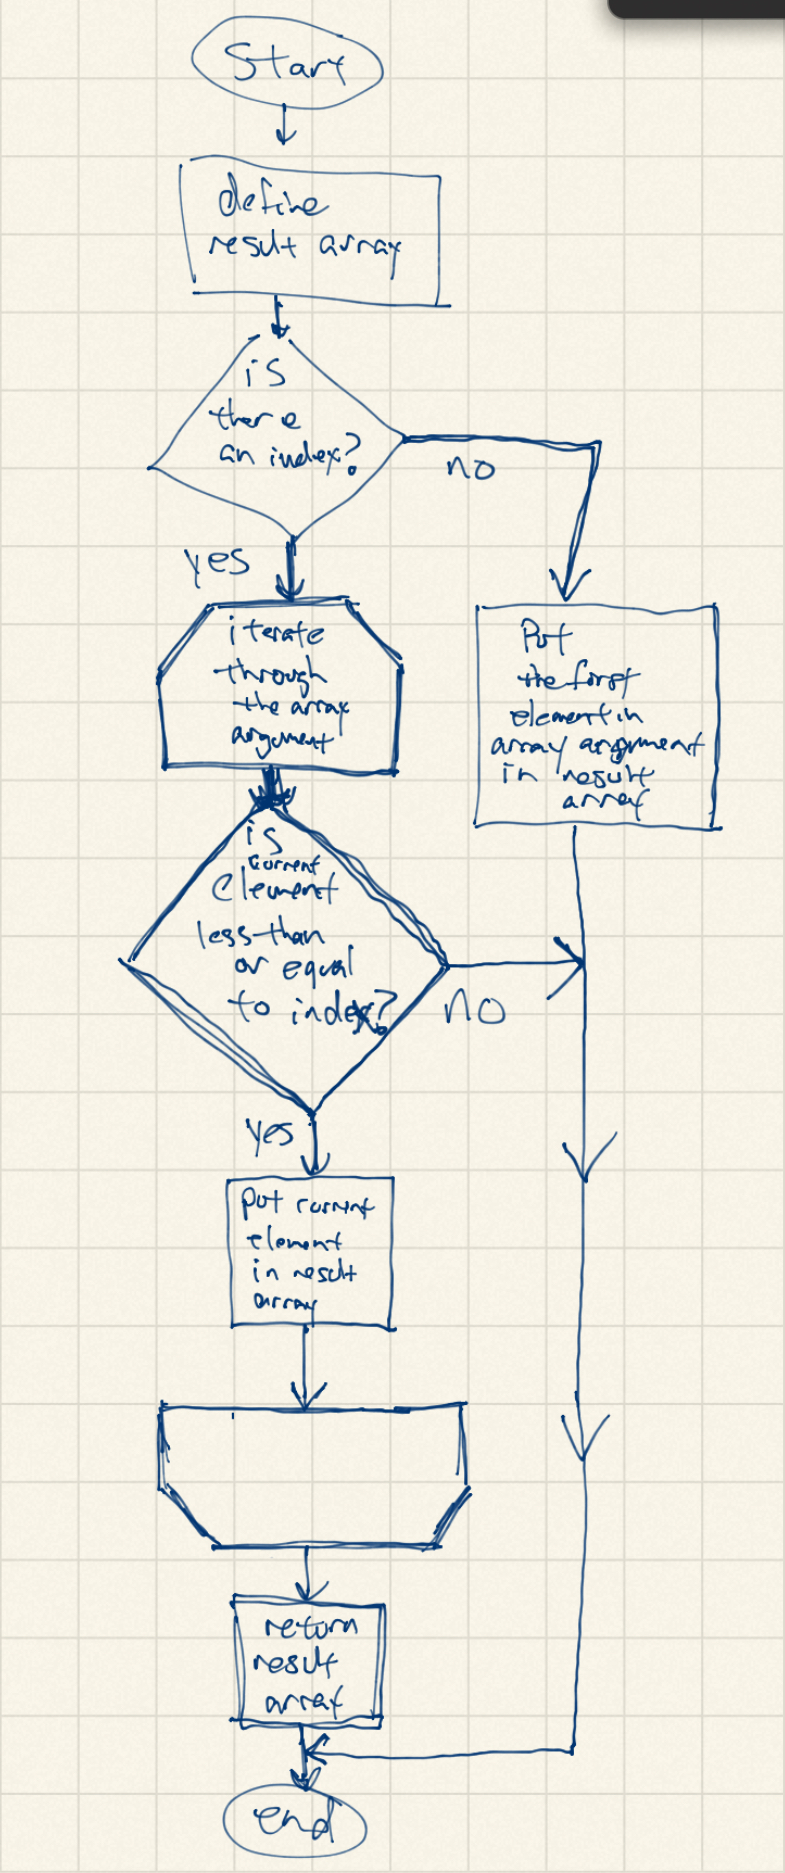 Start
define
result array
is
there
an index?
no
yes
iterate
through
the array
argument
Put
the first
element in
array argument
in result
array
is
current
element
less than
or equal
to index?
no
yes
put current
element
in result
array
return
result
array
end